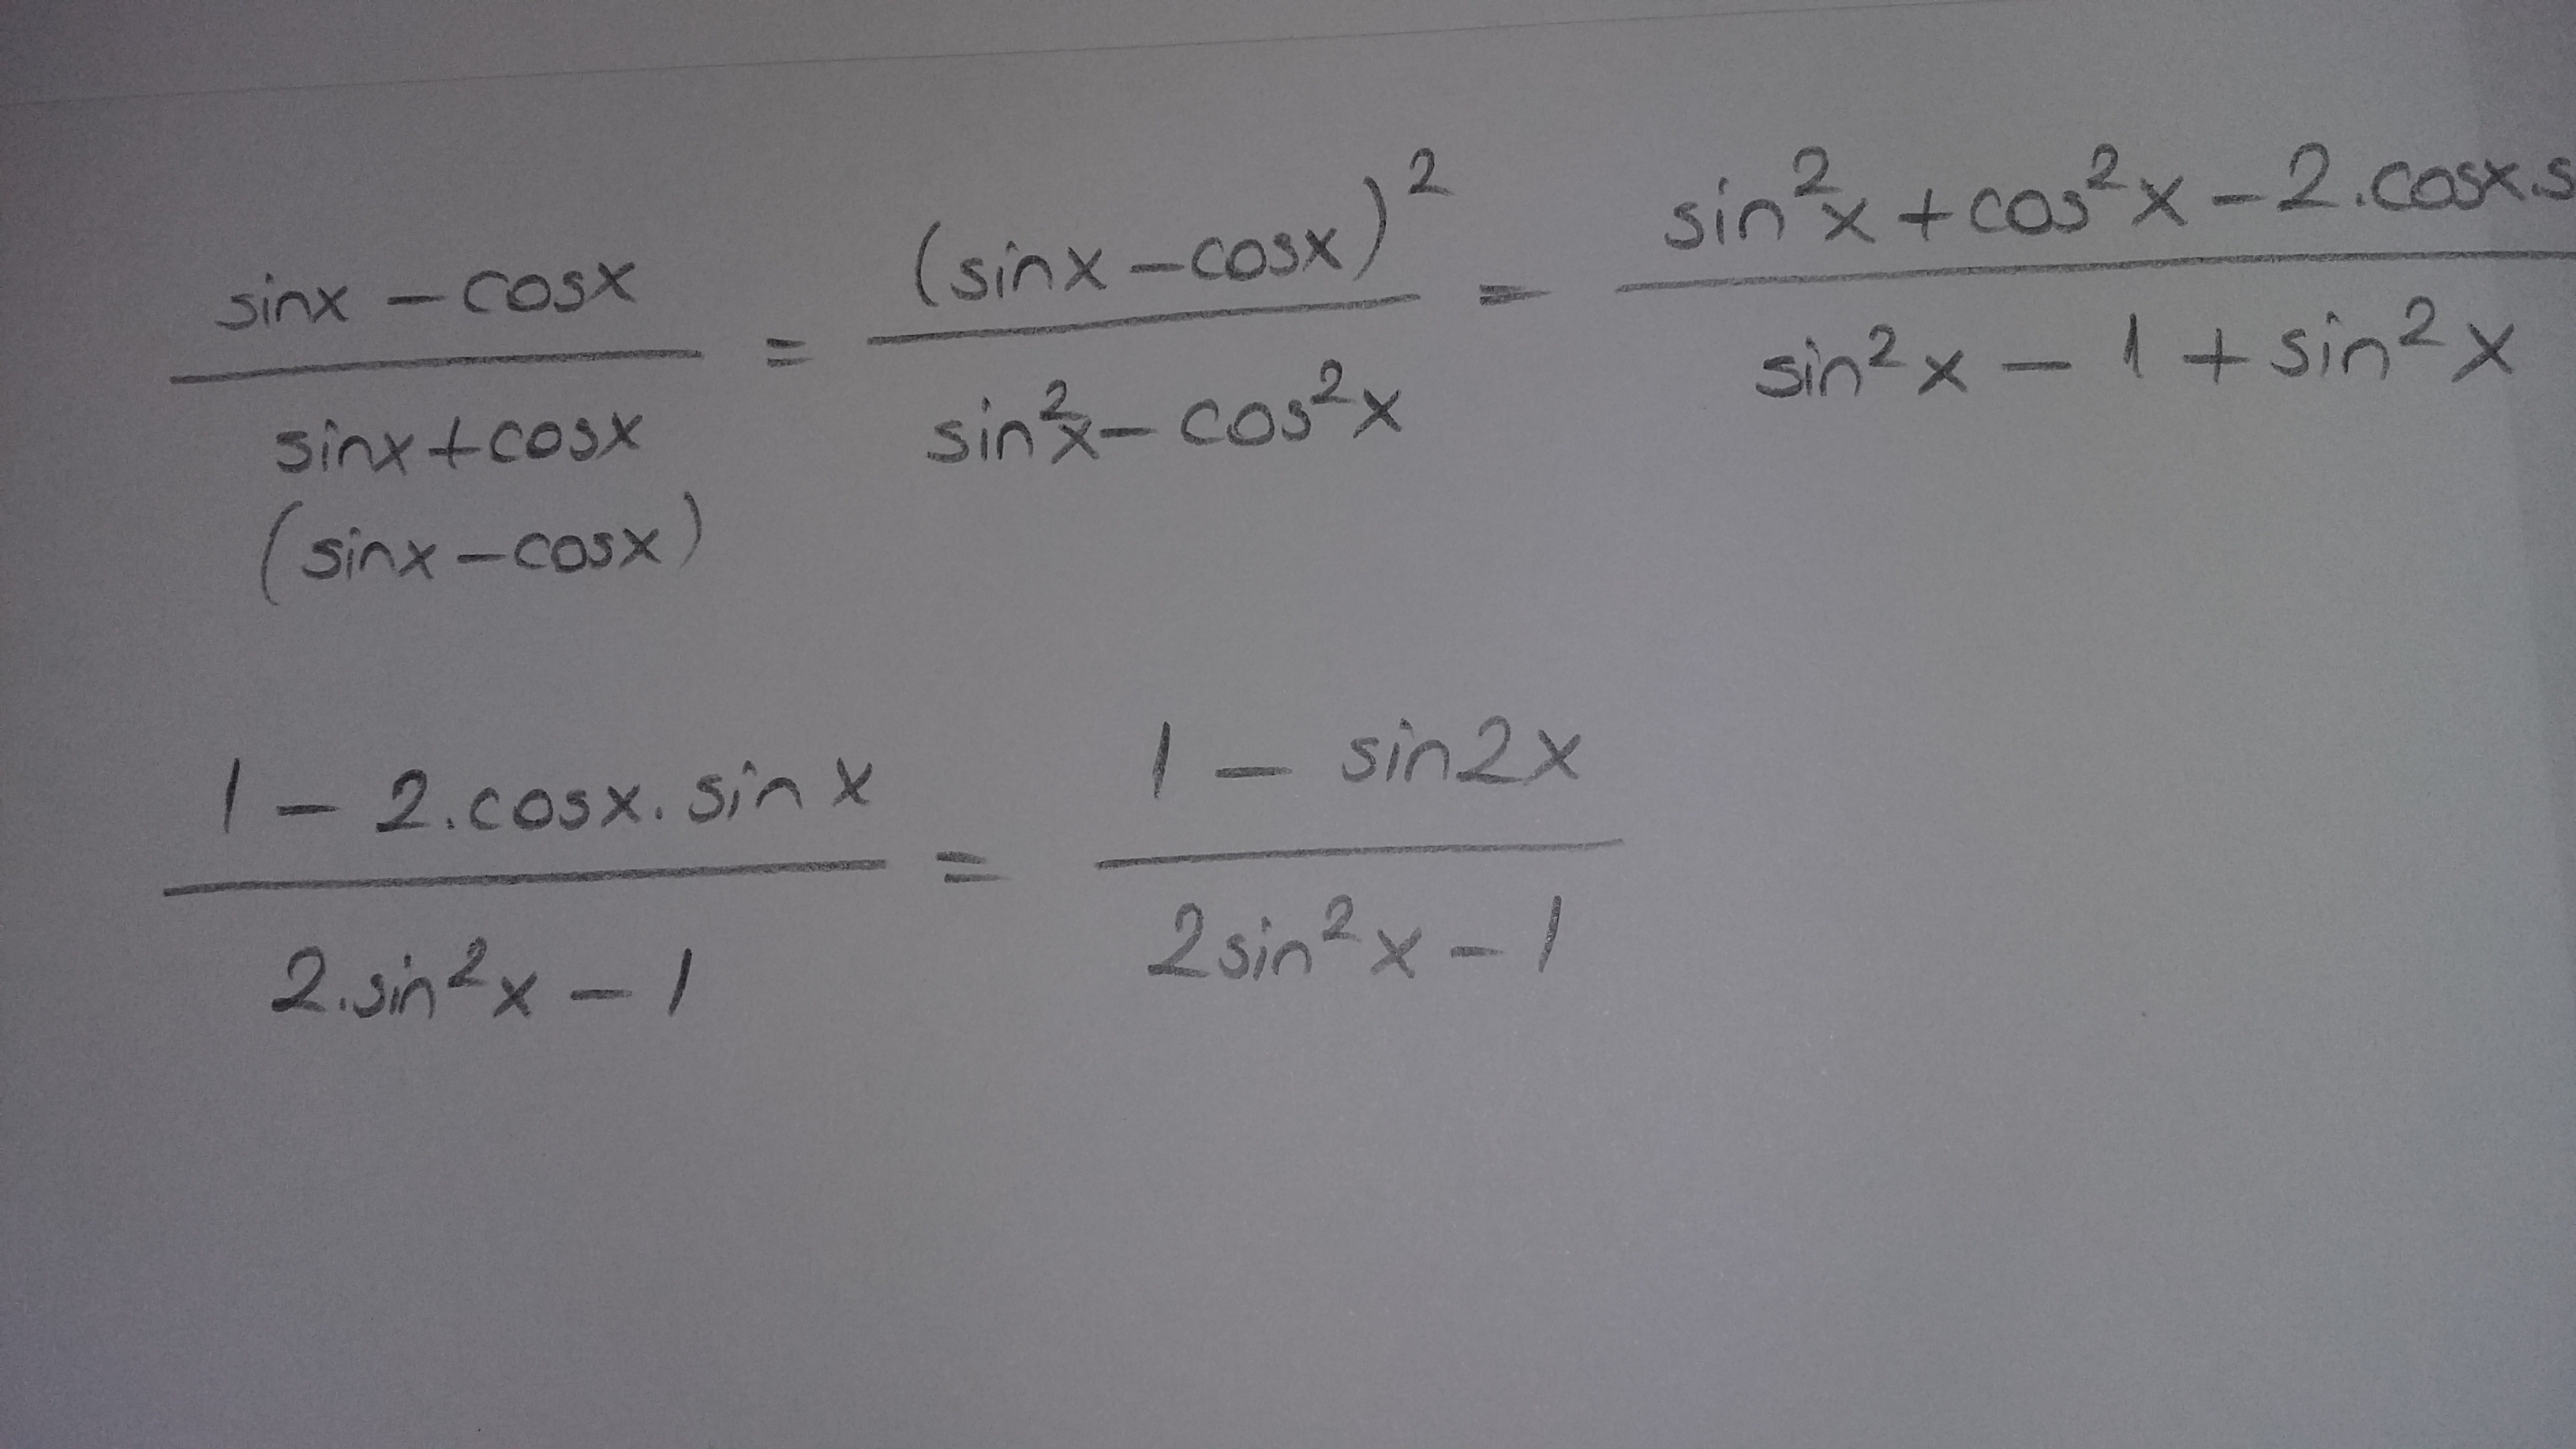 sinx - cosx / sinx + cosx (sinx - cosx) = (sinx - cosx)² / sin²x - cos²x = sin²x + cos²x - 2.cosx.s / sin²x - 1 + sin²x
1 - 2.cosx.sinx / 2.sin²x - 1 = 1 - sin2x / 2sin²x - 1